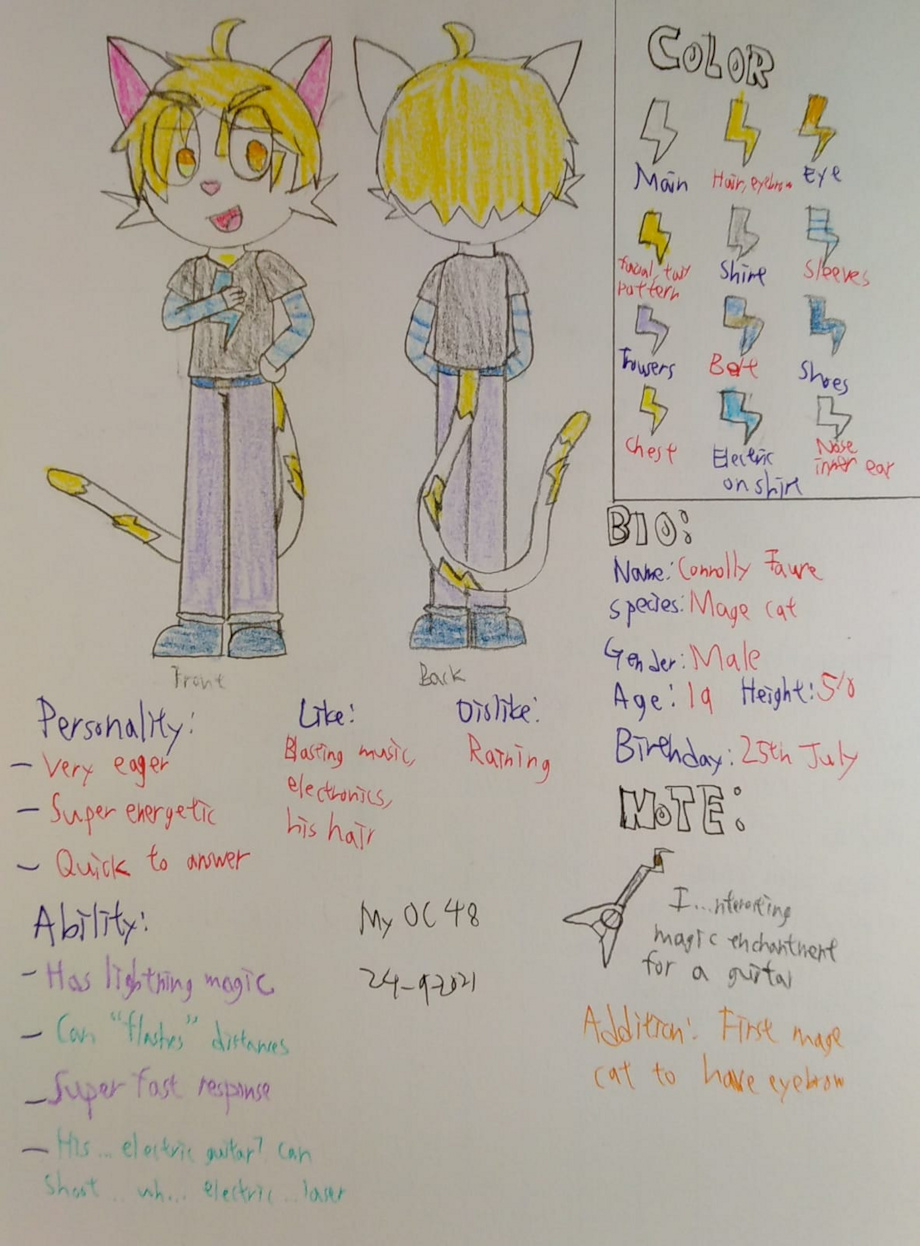 COLOR
Main
Hair, eyebrow
Eye
facial, tail
pattern
Shirt
Sleeves
Trousers
Belt
Shoes
Chest
Electric
on shirt
Nose
inner ear
Front
Back
BIO:
Name: Connolly Faure
Species: Mage cat
Gender: Male
Age: 19 Height: 5'8
Birthday: 25th July
Personality:
- Very eager
- Super energetic
- Quick to answer
Like:
Blasting music,
electronics,
his hair
Dislike:
Raining
Ability:
- Has lightning magic
- Can "flashes" distances
- Super fast response
- His... electric guitar? can
shoot... uh... electric... laser
My OC 48
24-9-2021
NOTE:
I...nteresting
magic enchantment
for a guitar
Addition: First mage
cat to have eyebrow